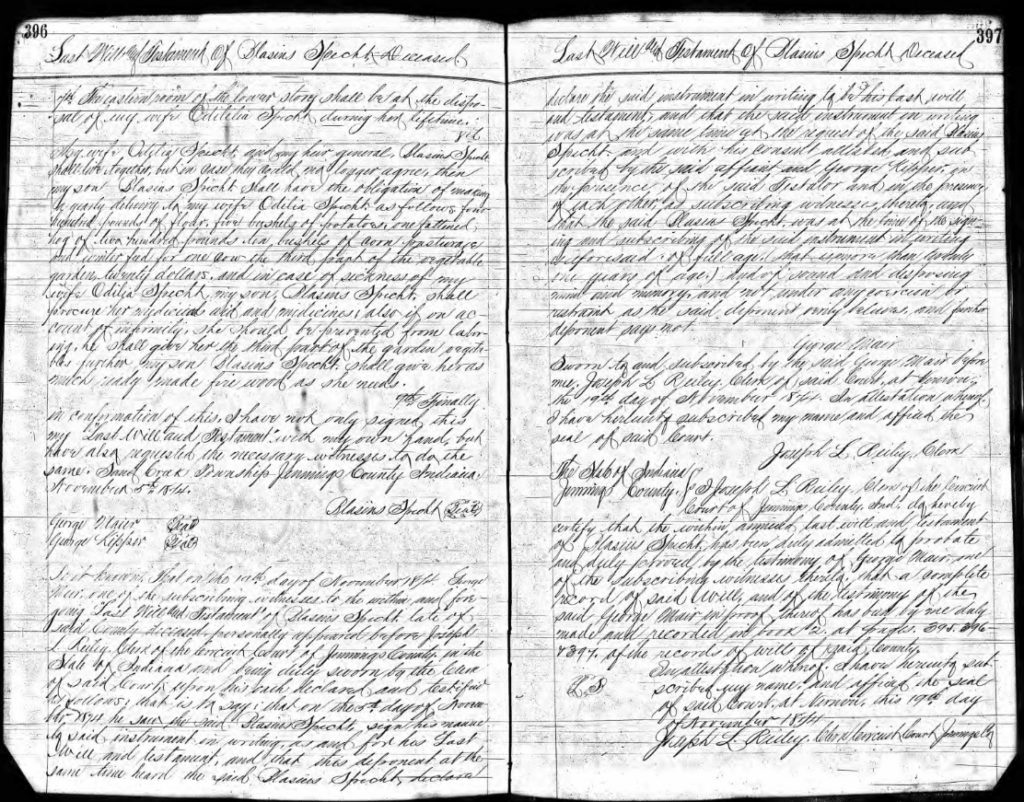 396
Last Will and Testament Of Blasius Specht, Deceased
The eastern room of the lower story shall be at the dispo-
sal of my wife Odilia Specht during her lifetime.
My wife Odilia Specht, and my heir general, Blasius Specht
shall live together, but in case they could no longer agree, then
my son Blasius Specht shall have the obligation of making
a yearly delivery to my wife Odilia Specht as follows, four
hundred pounds of flour, five bushels of potatoes, one fattened
hog of two hundred pounds, ten bushels of corn, pasturage
and winter fud for one cow the third part of the vegetable
garden, twenty dollars, and in case of sickness of my
wife Odilia Specht, my son, Blasius Specht, shall
procure her medical aid and medicines; also if on ac-
count of infirmity, she should be prevented from labor-
ing, he shall give her the third part of the garden vegeta-
bles further my son Blasius Specht, shall give her as
much ready made fire wood as she needs.
9th Finally
In confirmation of this, I have not only signed this
my "Last Will and Testament" with my own hand, but
have also requested the necessary witnesses to do the
same. Sand Creek Township Jennings County Indiana.
November 5th 1874.
Blasius Specht (Seal)
George Maier (Seal)
George Kipper (Seal)
Be it known, that on the 19th day of November 1874 George
Mair, one of the subscribing witnesses to the within and fore-
going Last Will and Testament of Blasius Specht, late of
said County deceased, personally appeared before Joseph
L Reiley Clerk of the Circuit Court of Jennings County, in the
State of Indiana and being duly sworn by the Clerk
of said Court, upon his oath declared and testified
as follows; that is to say; that on the 5th day of Novem-
ber 1874 he saw the said Blasius Specht, sign his name
to said instrument in writing, as and for his Last
Will and testament, and that this deponent at the
same time heard the said Blasius Specht, declare
397
Last Will and Testament Of Blasius Specht Deceased
declare the said instrument in writing to be his last will
and testament, and that the said instrument in writing
was at the same time at the request of the said Blasius
Specht and with his consent attested and sub-
scribed by the said affiant and George Kipper, in
the presence of the said Testator and in the presence
of each other, as subscribing witnesses thereto, and
that the said Blasius Specht, was at the time of the sign-
ing and subscribing of the said instrument in writing
aforesaid, of full age, (that is, more than twenty
one years of age,) and of sound and disposing
mind and memory, and not under any coercion or
restraint as the said deponent verily believes, and further
deponent says not.
George Mair
Sworn to and subscribed by the said George Mair before
me, Joseph L Reiley, Clerk of said Court, at Vernon,
the 19th day of November 1874. In attestation whereof,
I have hereunto subscribed my name and affixed the
seal of said Court.
Joseph L Reiley Clerk
The State of Indiana
Jennings County, I Joseph L Reiley Clerk of the Circuit
Court of Jennings County, Ind. do hereby
certify that the within annexed last will and testament
of Blasius Specht, has been duly admitted to probate
and duly proved by the testimony of George Mair, one
of the subscribing witnesses thereto; that a complete
record of said Will, and of the testimony of the
said George Mair in proof thereof has been by me duly
made and recorded in book 2, at pages 395. 396
& 397. of the records of wills of said County.
In attestation whereof, I have hereunto sub-
L. S. scribed my name, and affixed the seal
of said Court, at Vernon, this 19th day
of November 1874
Joseph L Reiley, Clerk Circuit Court Jennings Co